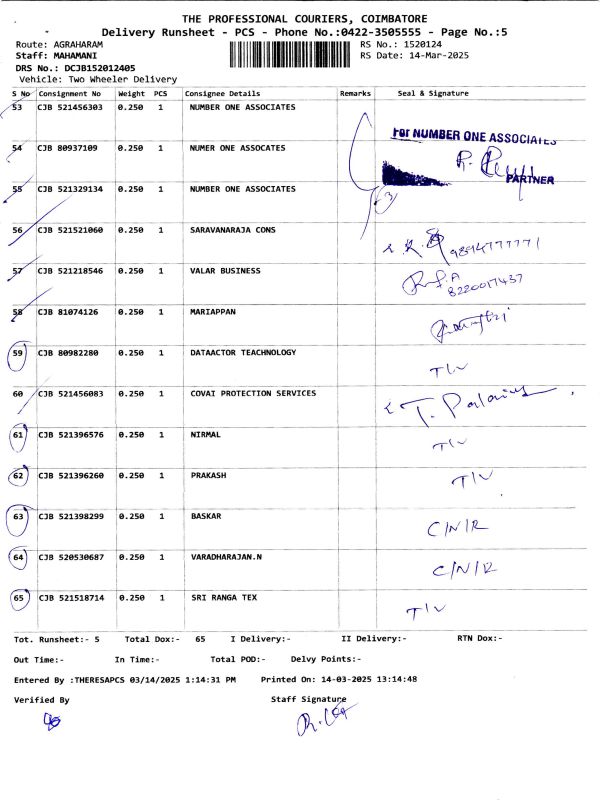 THE PROFESSIONAL COURIERS, COIMBATORE
Delivery Runsheet - PCS - Phone No.:0422-3505555 - Page No.:5
Route: AGRAHARAM RS No.: 1520124
Staff: MAHAMANI RS Date: 14-Mar-2025
DRS No.: DCJB152012405
Vehicle: Two Wheeler Delivery
S No Consignment No Weight PCS Consignee Details Remarks Seal & Signature
53 CJB 521456303 0.250 1 NUMBER ONE ASSOCIATES
For NUMBER ONE ASSOCIATES
54 CJB 80937109 0.250 1 NUMER ONE ASSOCATES
PARTNER
55 CJB 521329134 0.250 1 NUMBER ONE ASSOCIATES
3
56 CJB 521521060 0.250 1 SARAVANARAJA CONS
9894777771
57 CJB 521218546 0.250 1 VALAR BUSINESS
8220017437
58 CJB 81074126 0.250 1 MARIAPPAN
59 CJB 80982280 0.250 1 DATAACTOR TEACHNOLOGY T/V
60 CJB 521456083 0.250 1 COVAI PROTECTION SERVICES
61 CJB 521396576 0.250 1 NIRMAL T/V
62 CJB 521396260 0.250 1 PRAKASH T/V
63 CJB 521398299 0.250 1 BASKAR C/N/R
64 CJB 520530687 0.250 1 VARADHARAJAN.N C/N/R
65 CJB 521518714 0.250 1 SRI RANGA TEX T/V
Tot. Runsheet:- 5 Total Dox:- 65 I Delivery:- II Delivery:- RTN Dox:-
Out Time:- In Time:- Total POD:- Delvy Points:-
Entered By :THERESAPCS 03/14/2025 1:14:31 PM Printed On: 14-03-2025 13:14:48
Verified By Staff Signature